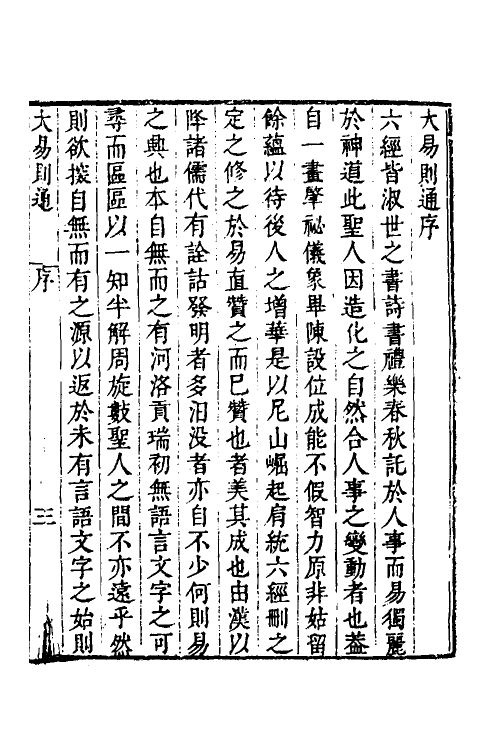 大易則通序
六經皆淑世之書詩書禮樂春秋託於人事而易獨麗
於神道此聖人因造化之自然合人事之變動者也葢
自一畫肇祕儀象畢陳設位成能不假智力原非姑留
餘蘊以待後人之增華是以尼山崛起肩統六經刪之
定之修之於易直贊之而已贊也者美其成也由漢以
降諸儒代有詮詁發明者多汨没者亦自不少何則易
之興也本自無而之有河洛貢瑞初無語言文字之可
尋而區區以一知半解周旋數聖人之間不亦遠乎然
則欲㨿自無而有之源以返於未有言語文字之始則
大易則通
序
三